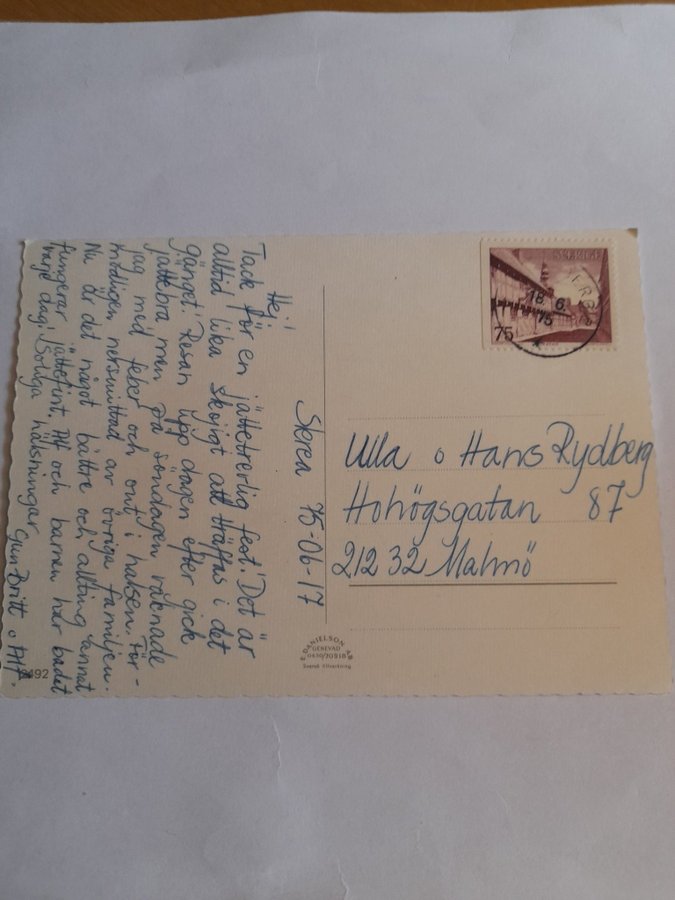 Skrea 75-06-17
Hej!
Tack för en jättetrevlig fest! Det är
alltid lika skojigt att träffas i det
gänget! Resan upp dagen efter gick
jättebra men på söndagen vaknade
jag med feber och ont i halsen. För-
modligen nersmittad av övriga familjen.
Nu är det något bättre och allting annat
fungerar jättefint. Alf och barnen har badet
varje dag! Soliga hälsningar
GunBritt o Alf.
SVERIGE
75
18. 6.
75
Ulla o Hans Rydberg
Hohögsgatan 87
212 32 Malmö
E. DANIELSON AB
GENEVAD
0430/70218
Svensk tillverkning